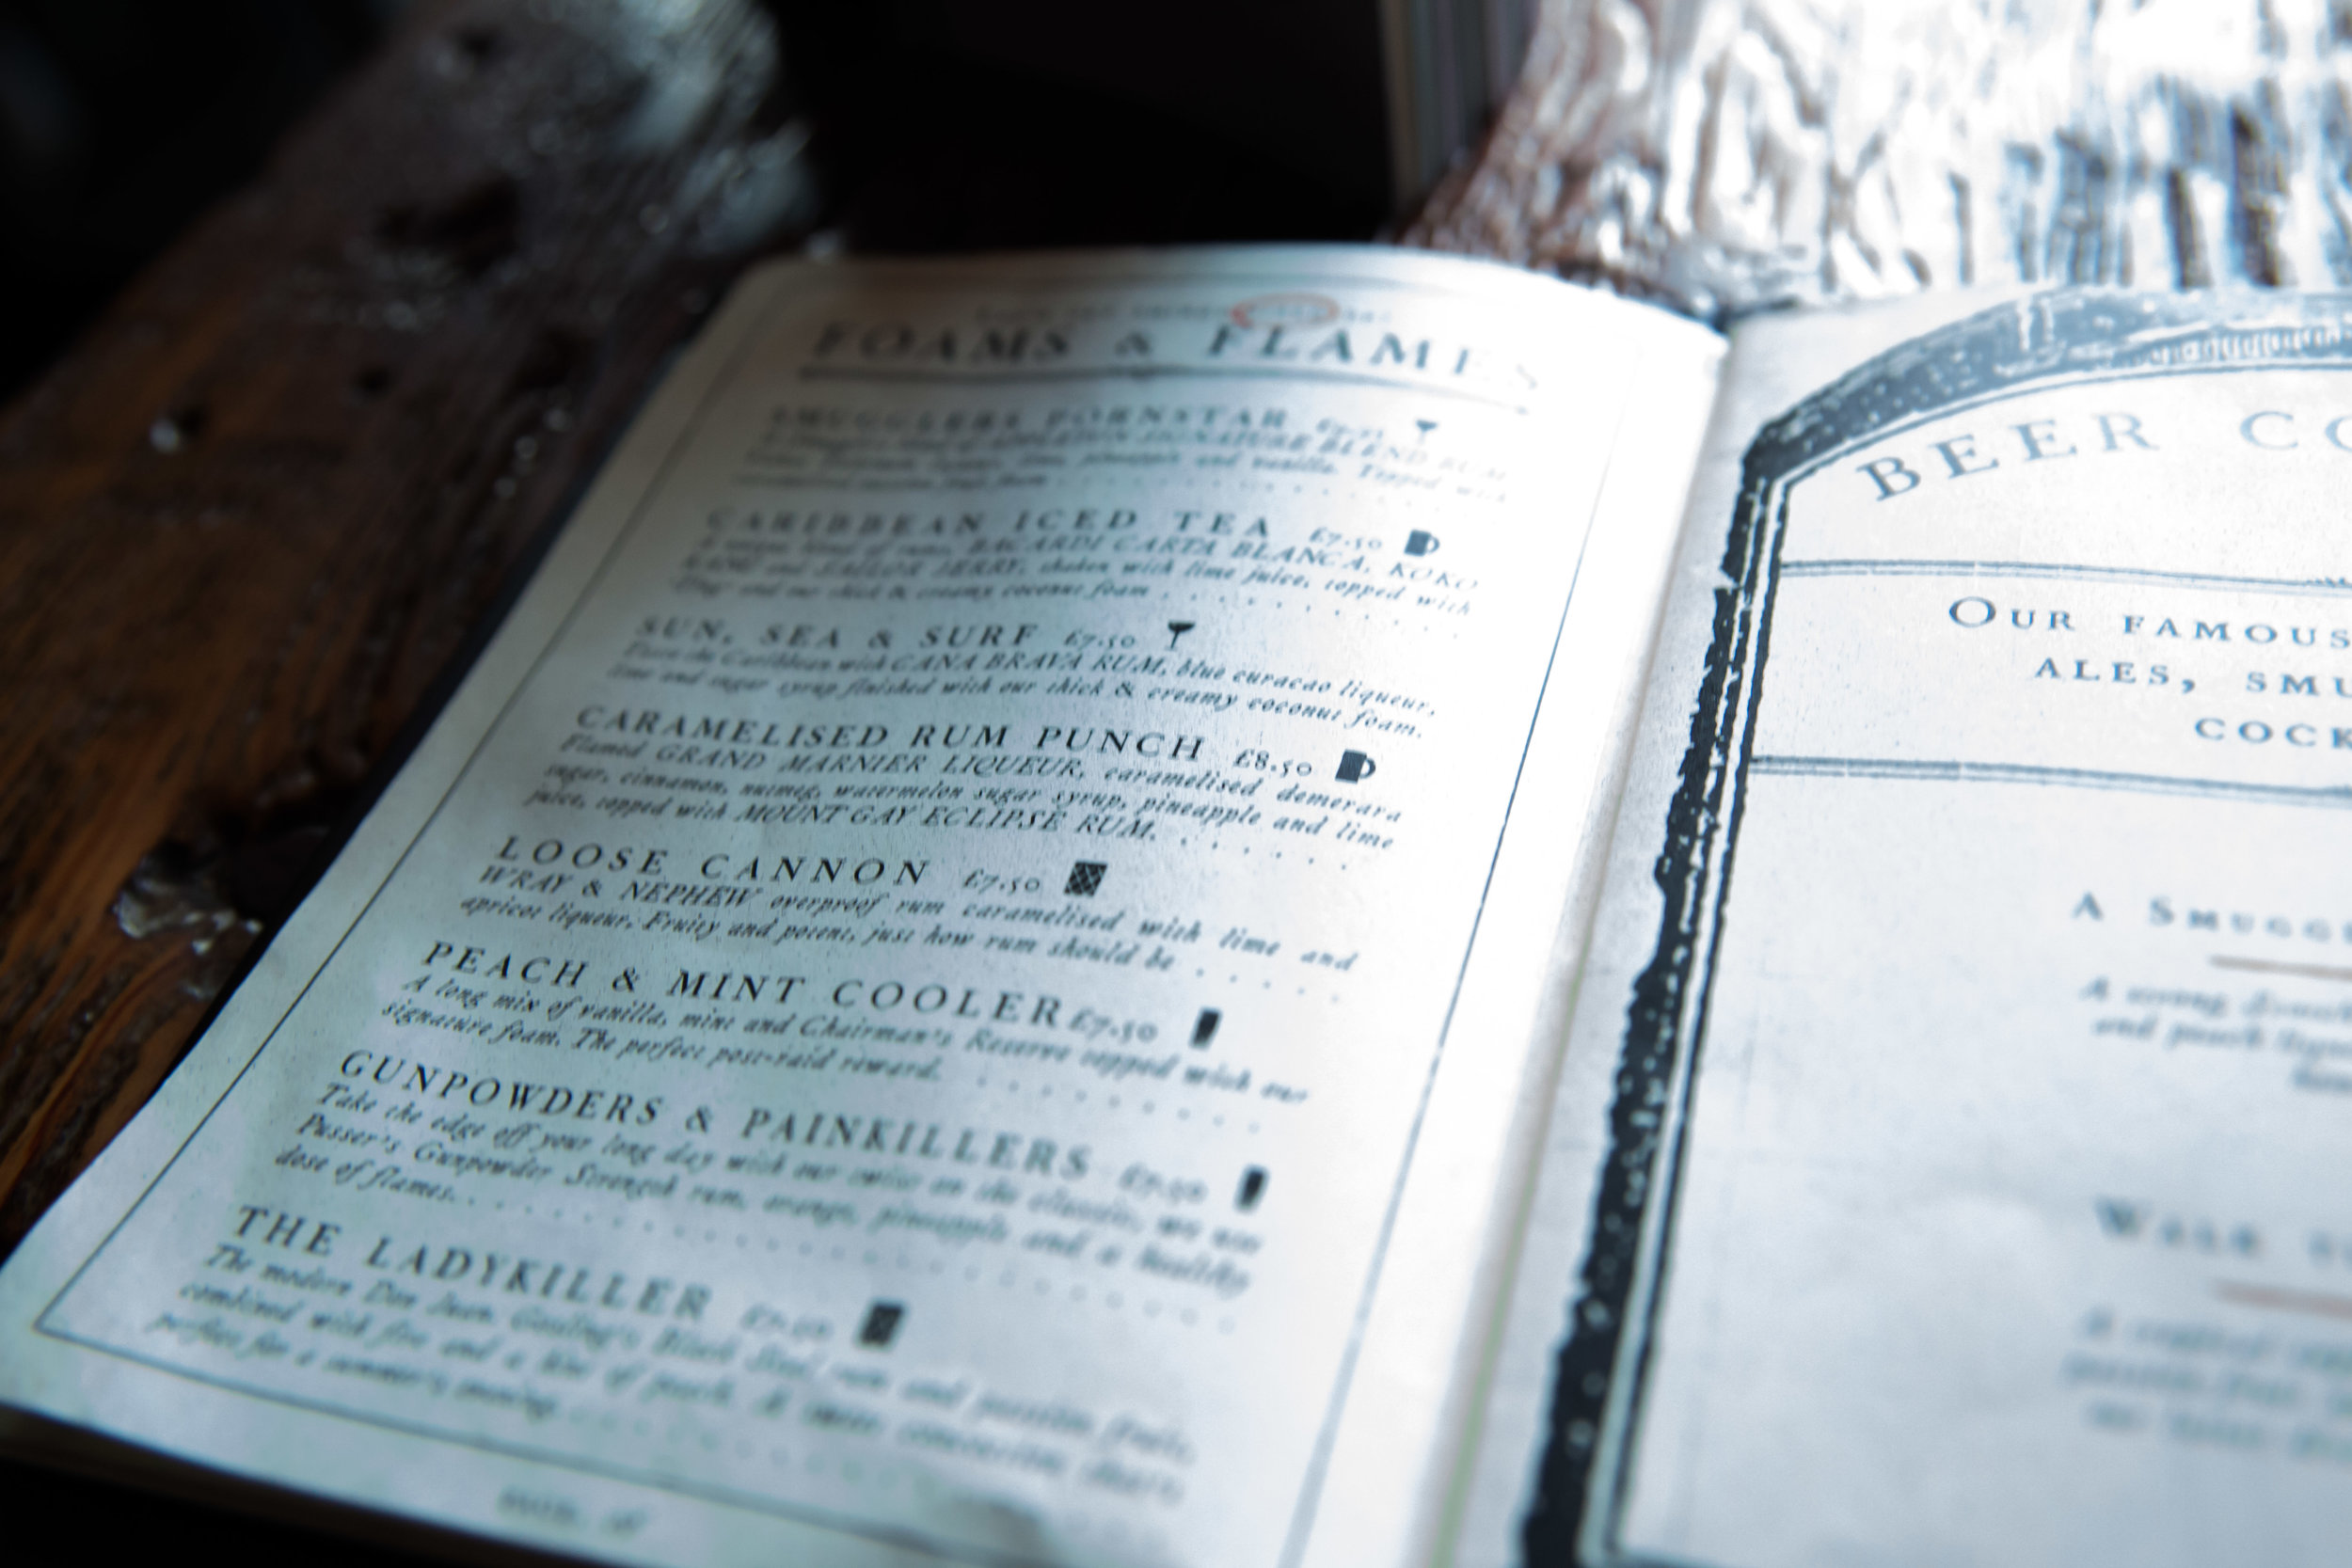 FOAMS & FLAMES
SMUGGLERS PORNSTAR
SIGNATURE BLEND RUM
pineapple and vanilla. Topped with
CARIBBEAN ICED TEA £7.50
A unique blend of rums, BACARDI CARTA BLANCA, KOKO
KANU and SAILOR JERRY, shaken with lime juice, topped with
and our thick & creamy coconut foam
SUN, SEA & SURF £7.50
Taste the Caribbean with CANA BRAVA RUM, blue curacao liqueur,
lime and sugar syrup finished with our thick & creamy coconut foam.
CARAMELISED RUM PUNCH £8.50
Flamed GRAND MARNIER LIQUEUR, caramelised demerara
sugar, cinnamon, nutmeg, watermelon sugar syrup, pineapple and lime
juice, topped with MOUNT GAY ECLIPSE RUM. . . . . . .
LOOSE CANNON £7.50
WRAY & NEPHEW overproof rum caramelised with lime and
apricot liqueur. Fruity and potent, just how rum should be . . . . .
PEACH & MINT COOLER £7.50
A long mix of vanilla, mint and Chairman's Reserve topped with our
signature foam. The perfect post-raid reward.
GUNPOWDERS & PAINKILLERS £7.50
Take the edge off your long day with our twist on the classic, we use
Pusser's Gunpowder Strength rum, orange, pineapple and a healthy
dose of flames.
THE LADYKILLER £7.50
The modern Don Juan. Gosling's Black Seal rum and passion fruit,
combined with fire and a hint of peach. A
perfect for a summer's evening
BEER CO
OUR FAMOUS
ALES, SMU
COCK
A SMUGG
A strong
and peach
WALK